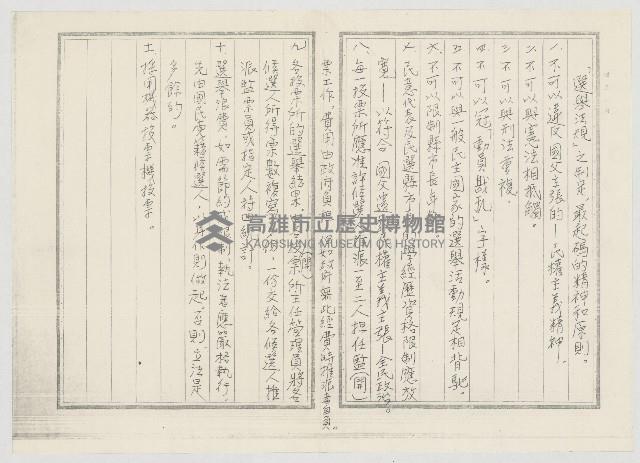 「選舉法規」之制定，最起碼的精神和原則。
一、不可以違反國父主張的—民權主義精神—。
二、不可以與憲法相抵觸。
三、不可以與刑法重複。
四、不可以冠「動員戡亂」字樣。
五、不可以與一般民主國家的選舉活動規定相背馳。
六、不可以限制縣市長年
七、民意代表及民選縣市長的學經歷資格限制應放
寬—以符合國父遺 民權主義主張—全民政治。
八、每一投票所應准許候選人推派一至二人担任監（開）
票工作，費用由政府負担，
九、各投票所的選舉結果， 投票所主任管理員將各
候選人所得票數複寫 份，一份交給各候選人推
派監票員或指定人持
十、選舉浪費，如需節約或限制執法者應嚴格執行。
先由國民黨籍候選人，以身作則做起，否則立法是
多餘的。
十一、採用機器投票機投票。
高雄市立歷史博物館
KAOHSIUNG MUSEUM OF HISTORY